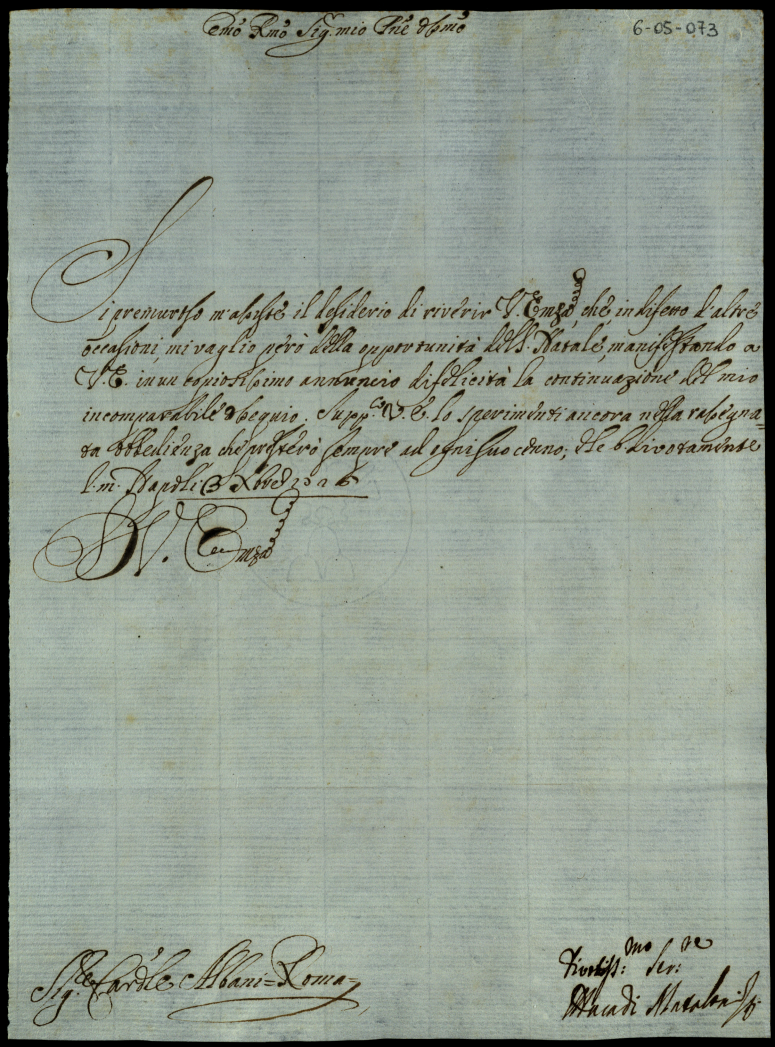 Emo Rmo Sig.r mio Pne Ossmo
6-05-073
Sì premuroso m'assiste il desiderio di riverir V. Emza, che in difetto d'altre
occasioni, mi vaglio però della opportunità del S. Natale, manifestando a
V. E. in un copiosissimo annuncio di felicità la continuazione del mio
incomparabile ossequio. Supp.co V. E. lo sperimenti ancora nella rassegna=
ta obbedienza che presterò sempre ad ogni suo cenno; e le b. divotamente
l. m. Napoli Xbre
D V. Emza
Sig.r Cardle Albani = Roma =
Divotiss:mo Ser:re